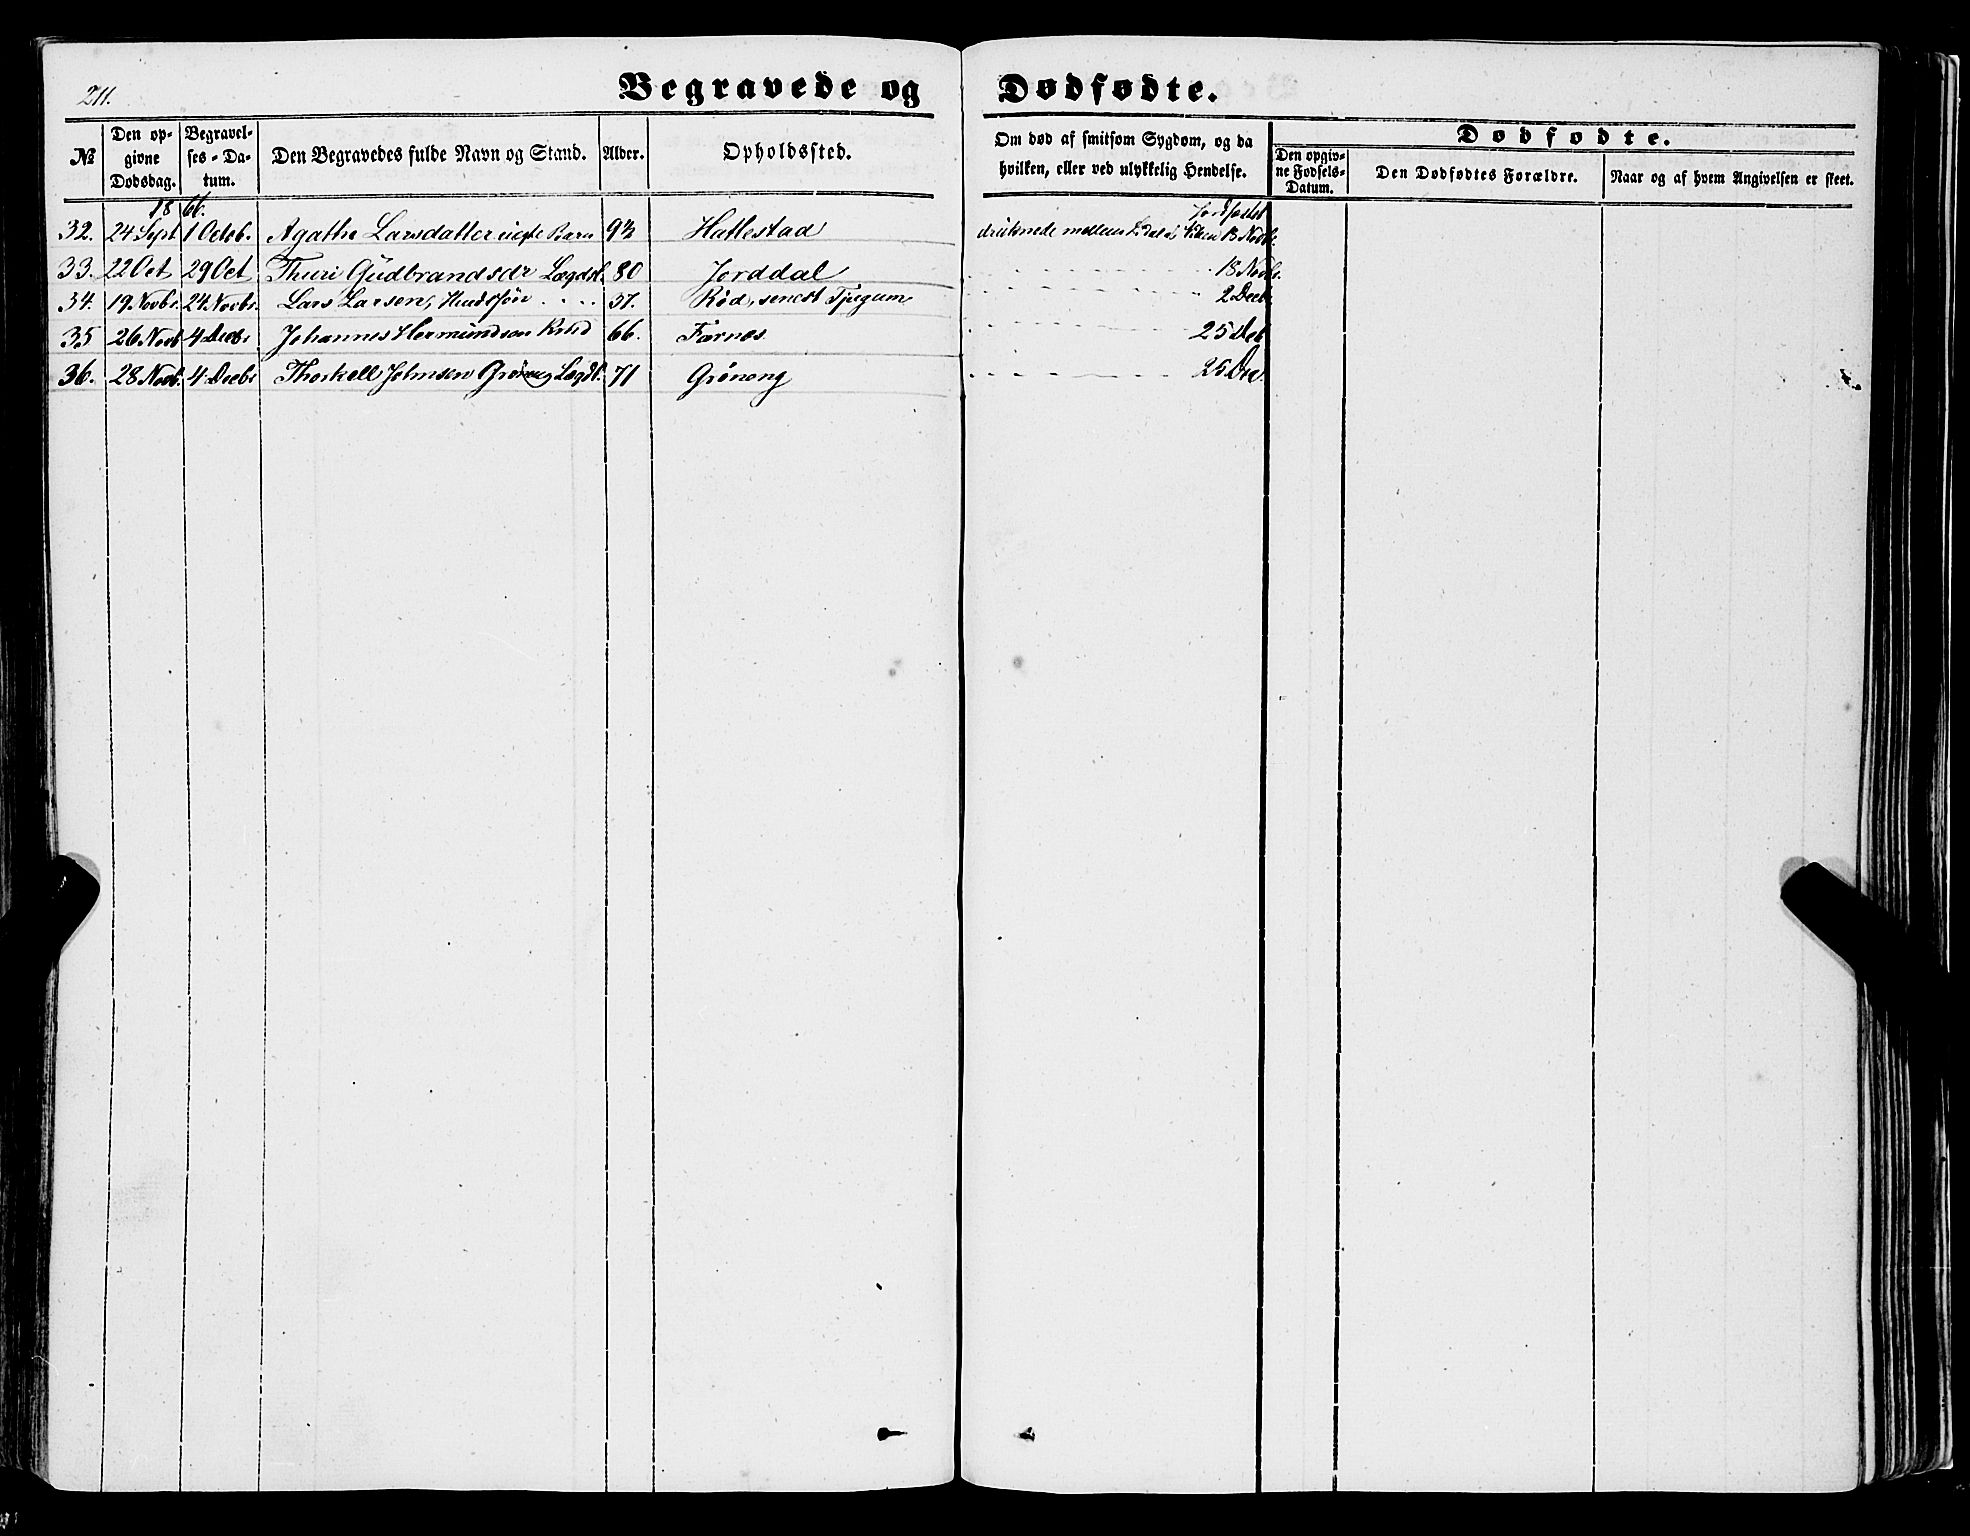 211.
Begravede og Dødfødte.
№
Den opgivne Dødsdag.
Begravelses-Datum.
Den Begravedes fulde Navn og Stand.
Alder.
Opholdssted.
Om død af smitsom Sygdom, og da hvilken, eller ved ulykkelig Hendelse.
Dødfødte.
Den opgivne Fødsels-Datum.
Den Dødfødtes Forældre.
Naar og af hvem Angivelsen er skeet.
1866.
Jordfæstet
32. 24 Sept 1 Octob. Agathe Larsdatter Barn Hallestad druknede mellem 13 Novbr.
33. 22 Oct 29 Oct Thuri Gudbrandsdr Lægdsl. 80 Jorddal 18 Novbr.
34. 19 Novbr. 24 Novbr. Lars Larsen, Huusfør 37. Rød, senest Tjugum 2 Decb.
35 26 Novb 4 Decbr Johannes Hermundsen 66. Farnes 25 Deb
36. 28 Novb. 4 Decbr Thorkell Johnsen Grøneng Lægdl. 71 Grøneng 25 Dec.